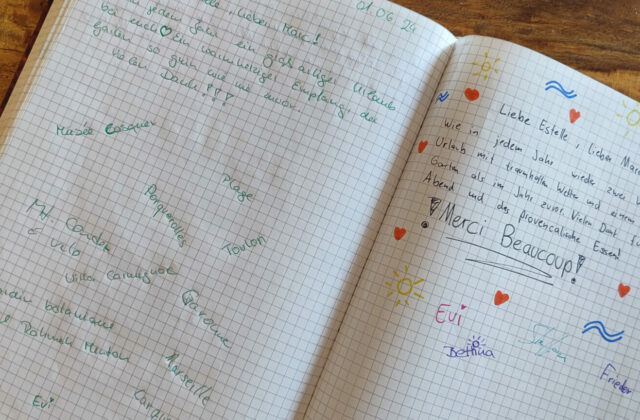 01.06.24
, lieben Marc!
in jedem Jahr ein großartiger Urlaub
bei euch ein warmherziger Empfang, der
Garten so grün wie nie zuvor.
Vielen Dank!!!
Musée Cosquer
Plage
Porquerolles
Toulon
Mt. Coudon
Vélo
Villa Carmignac
Garonne
Marseille
Evi
Liebe Estelle, lieber Marc
wie in jedem Jahr wieder zwei
Urlaub mit traumhaften Wetter und einem
Garten als im Jahr zuvor. Vielen Dank für
Abend und das provencalische Essen!
!Merci Beaucoup!
Evi
Bettina
Frieder